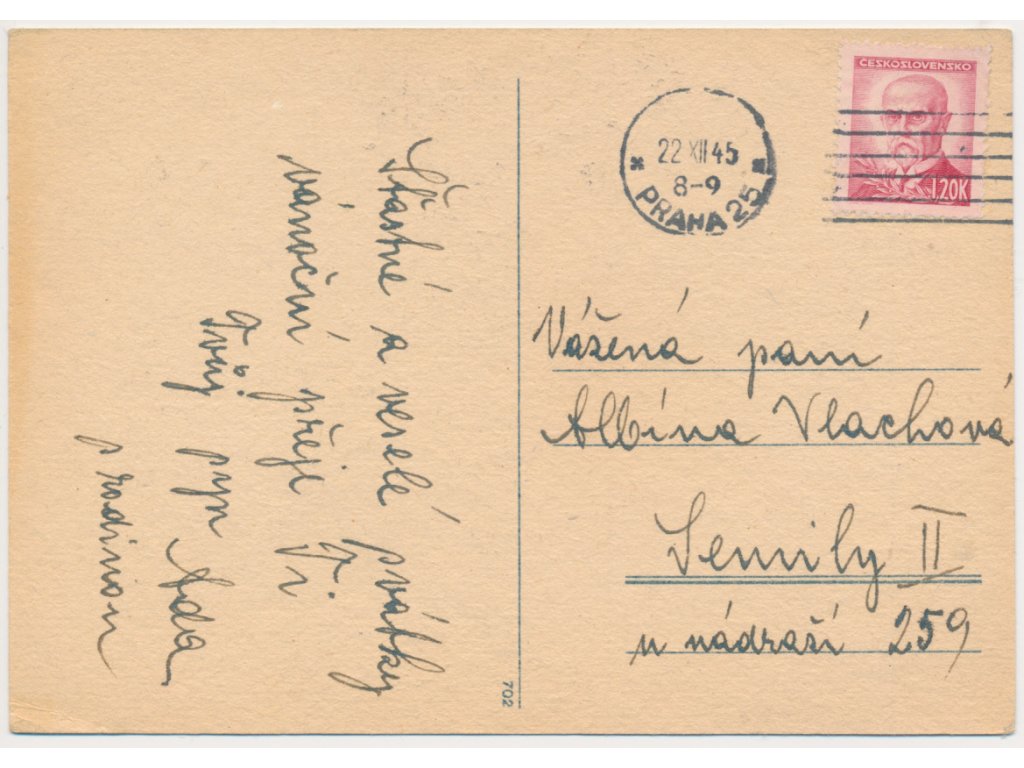 Šťastné a veselé svátky
vánoční přeje Ti
Tvůj syn Ada
s rodinou
702
ČESKOSLOVENSKO
1.20K
22 XII 45
8-9
PRAHA 25
Vážená paní
Albína Vlachová
Semily II
u nádraží 259